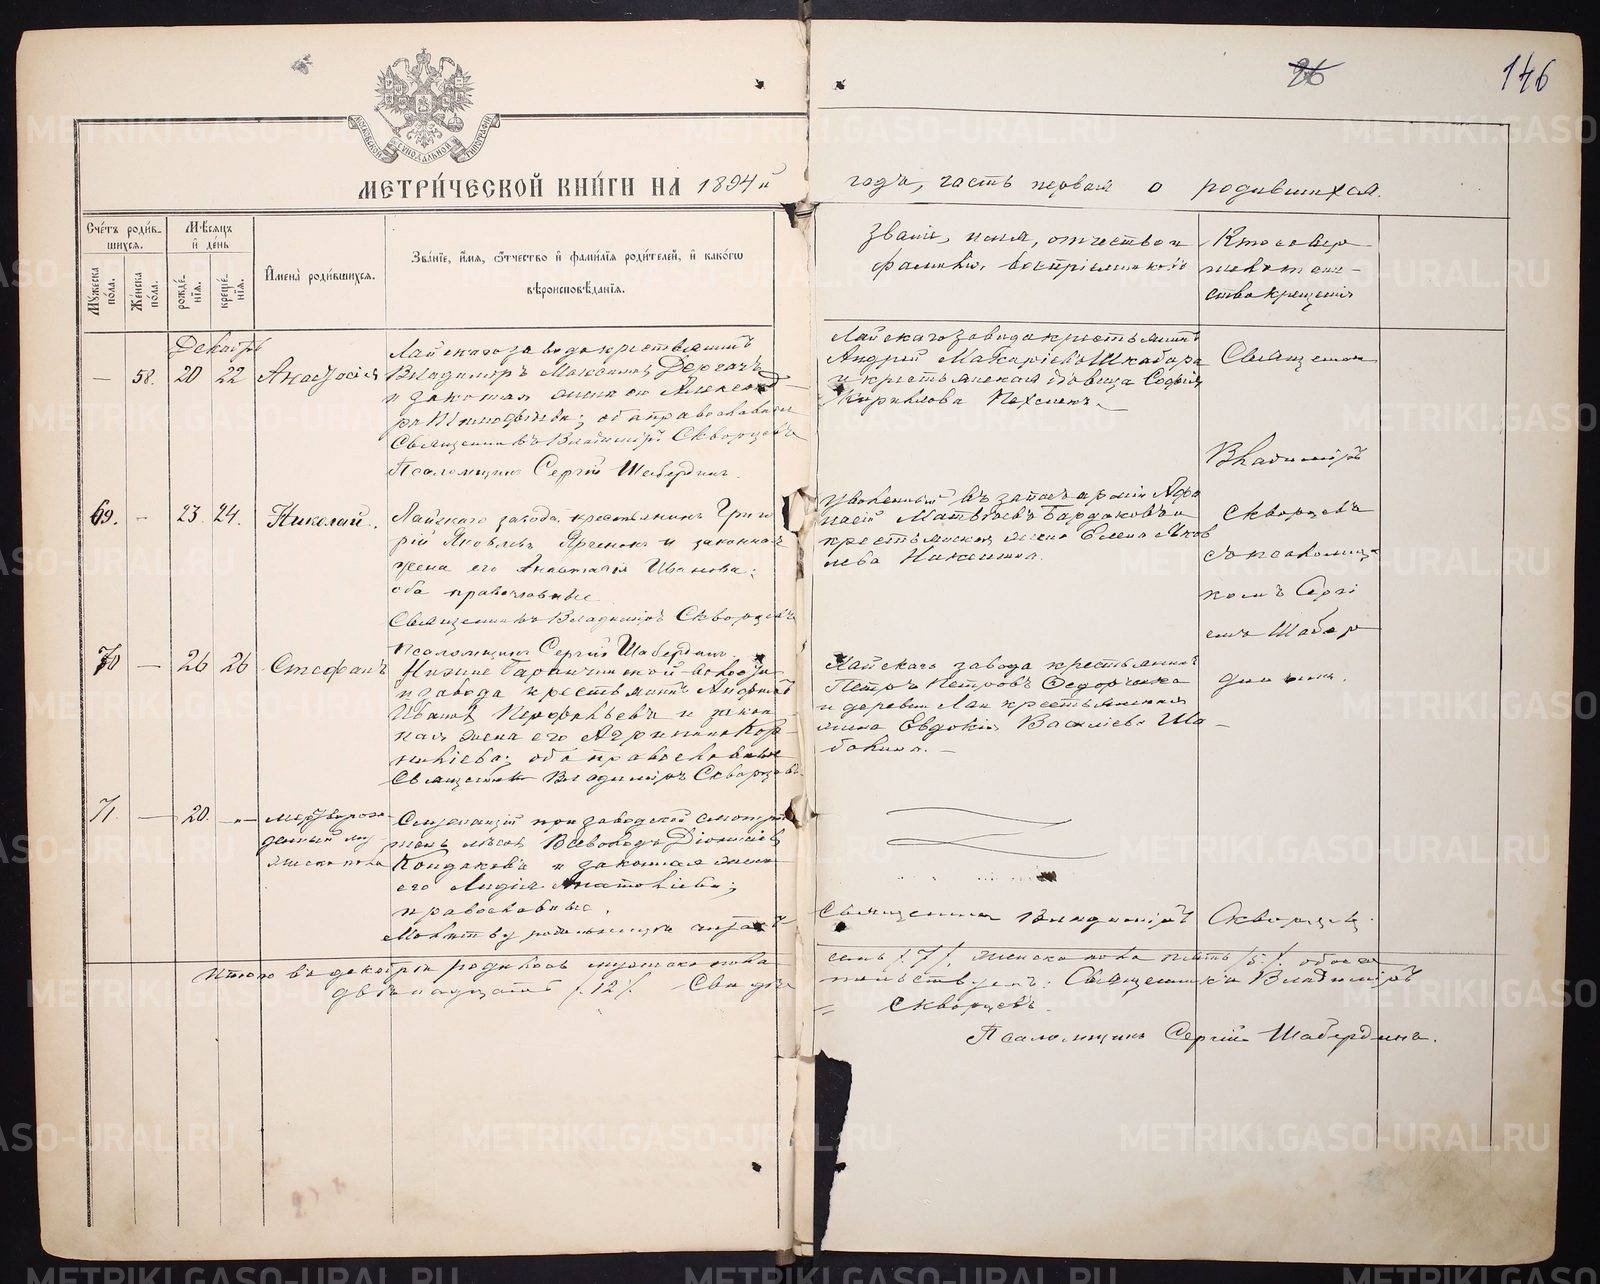 96
146
МЕТРИ́ЧЕСКОЙ КНИ́ГИ НА 1894й
годъ, часть первая о родившихся.
Сче́тъ роди́вшихся.
Му́жеска по́ла.
Же́нска по́ла.
Мѣ́сяцъ и́ де́нь
рожде́нїя.
креще́нїя.
И́мена̀ роди́вшихся.
Зва́нїе, и́мя, ѻ҆́тчество и҆ фами́лїя роди́телей, и҆ како́гѡ
вѣроисповѣ́данїя.
Званіе, имя, отчество и
фамилія воспріемниковъ
Кто совер
шалъ таин-
ство крещенія
Декабрь
— 58. 20 22 Анафосія
Лайскаго завода крестьянинъ
Владиміръ Максимовъ Дергачъ
и законная жена его Александ
ра ; оба православные
Священникъ Владиміръ Скворцевъ
Псаломщикъ Сергій Шабердинъ.
Лайскаго завода крестьянинъ
Андрей Макаріевъ Шкабара
и крестьянская дѣвица Софія
Кирилова
Священник
Владиміръ
Скворцевъ
съ псаломщи-
комъ Сергі
емъ Шабер
динымъ.
69. — 23. 24. Николай.
Лайскаго завода крестьянинъ Григо
рій Яковлевъ и законная
жена его Анастасія Иванова;
оба православные
Священникъ Владиміръ Скворцевъ
Псаломщикъ Сергій Шабердинъ.
Уволенный въ запасъ арміи Афа
насій Матвѣевъ Бардаковъ и
крестьянская жена Елена Яков
лева
70 — 26 26 Стефанъ
Нижне Баранчинской
завода крестьянинъ Андрей
Ивановъ Перфильевъ и закон
ная жена его Агрипина Кор
ниліева; оба православные
Священникъ Владиміръ Скворцевъ
Лайскаго завода крестьянинъ
Петръ Петровъ Федоренко
и деревни Лаи крестьянская
жена Евдокія Василіева Ша
бакина. —
71. — 20. — мертворож
денный му
жеска пола
Служащій при заводской смотри
тель лѣсовъ Всеволодъ Діонисіевъ
Кондаковъ и законная жена
его Лидія Анатоліева;
православные.
Молитву родильницѣ читалъ
Священникъ Владиміръ Скворцевъ.
Итого въ декабрѣ родилось мужеска пола
семь /7/, женска пола пять /5/, обоего
двѣнадцать /12/. Свидѣ
тельствуемъ: Священникъ Владиміръ
= Скворцевъ.
Псаломщикъ Сергій Шабердинъ.
METRIKI.GASO-URAL.RU